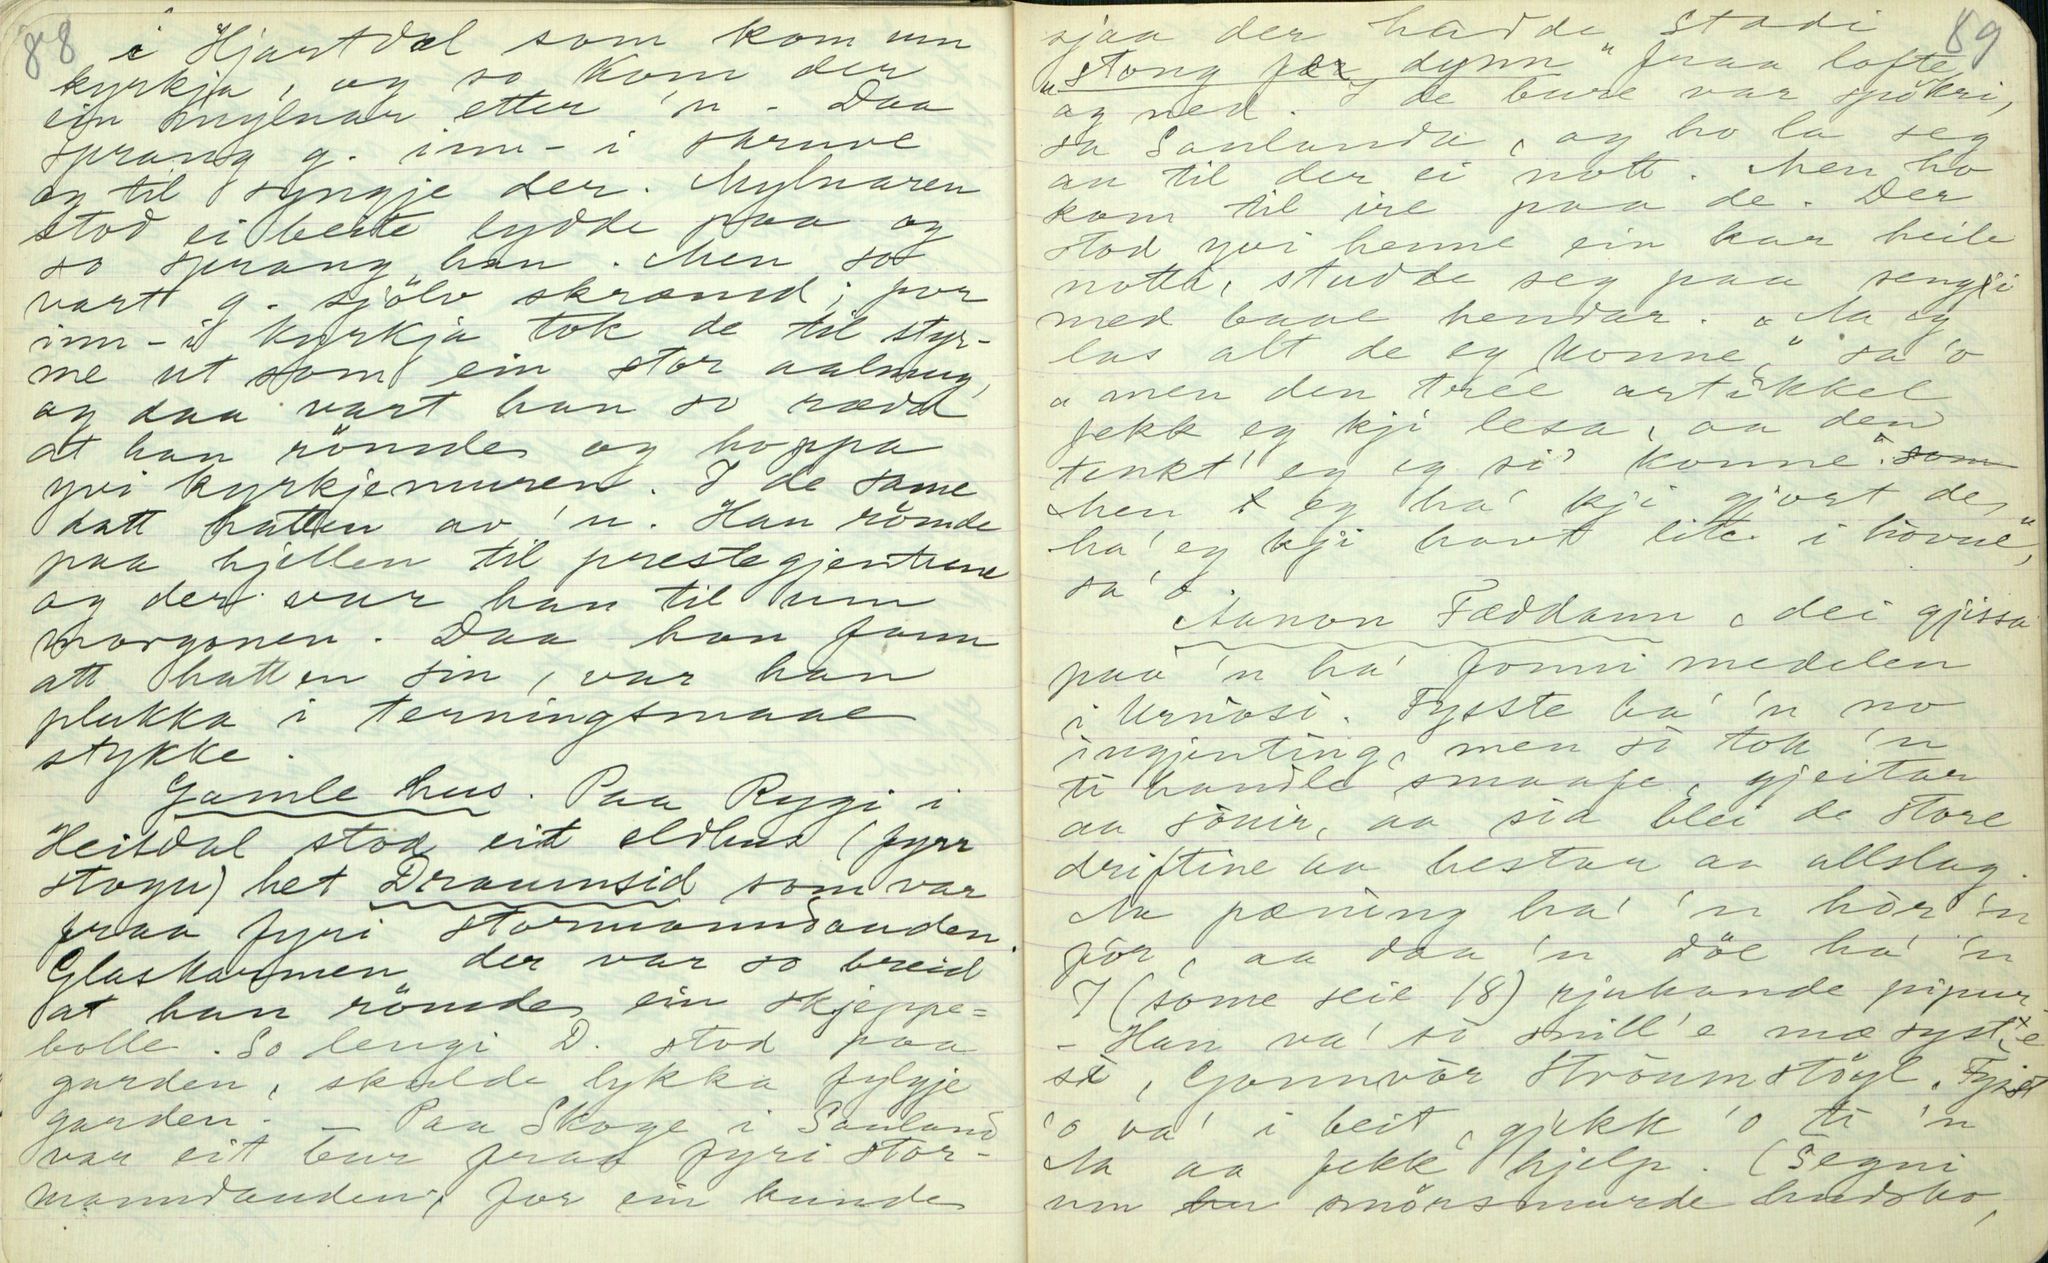 88
i Hjartdal som kom um
kyrkja, og so kom der
ein mylnar etter 'n - Daa
sprang g. inn - i skruve
og til syngje der. Mylnaren
stod ei beite lydde paa og
so sprang han. Men so
vart g. sjölv skræmd; for
inn - i kyrkja tok de til styr-
me ut som ein stor aalmug,
og daa vart han so rædd
at han römde og hoppa
yvi kyrkjemuren. I de same
datt hatten av 'n. Han römde
paa hjellen til prestegjentune
og der var han til um
morgonen. Daa han fann
att hatten sin, var han
plukka i terningsmaae
stykke.
Gamle hus. Paa Rygi i
Heitdal stod eit eldhus (fyrr
stogu) het Draumsid som var
fraa fyri stormanndauden.
Glaskarmen der var so breid
at han römde ein skjeppe=
bolle. So lengi D. stod paa
garden, skulde lykka fylgje
garden. - Paa Skoge i Sauland
var eit bur fraa fyri stor-
manndauden, for ein kunde
89
sjaa der hadde stadi
"stong for dynn" fraa lofte
og ned. I de bure var spökri,
sa Saulanda, og ho la seg
an til der ei nott. Men ho
kom til ire paa de. Der
stod yvi henne ein kar heile
notti, studde seg paa sengji
med baae hendar. "Aa eg
las alt de eg konne," sa 'o
"men den tree artikkel
fekk eg kji lesa, aa den
tenkt' eg eg si' konne". som
Men eg ha' kji gjort de,
ha' eg kji havt lite i hövue",
sa' o
Aanon Fæddann, dei gjissa
paa 'n ha' fonni medelen
i Urnosi. Fysste ha' 'n no
ingjenting, men so tok 'n
ti handle smaafe, gjeitar
aa sönir, aa sia blei de store
driftine aa hestar aa allslag.
Aa pæning ha' 'n hör 'n
för, aa daa 'n döe ha' 'n
7 (some seie 18) rjukande pipur
- Han va' so snill 'e mæ syste
si, Gonnvör Straumstöyl. Fysst
'o va' i beit, gjekk 'o ti 'n
Aa aa fekk hjelp. (Segni
um smörsmurde hudsko,